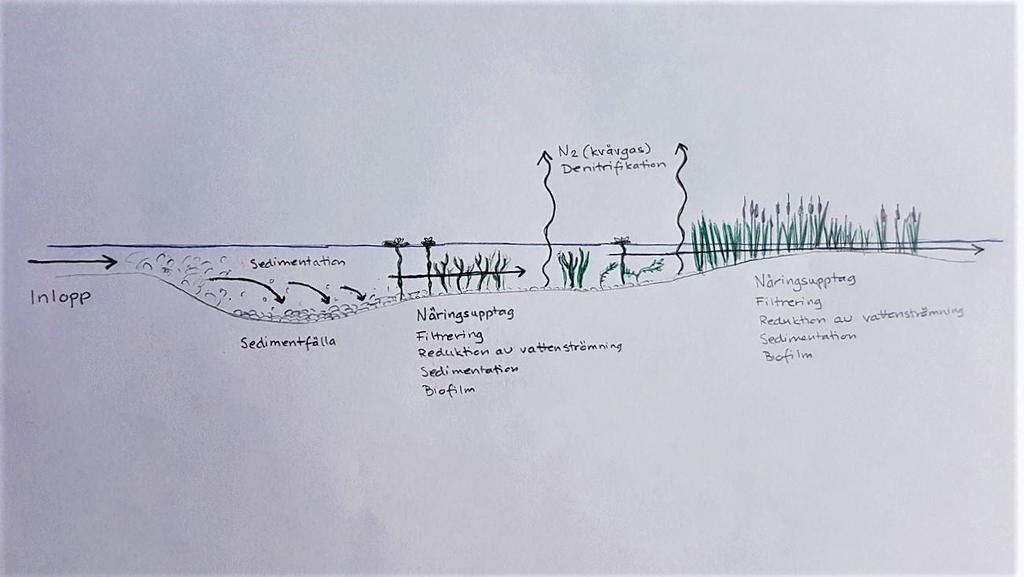 N2 (kvävgas)
Denitrifikation
Sedimentation
Inlopp
Sedimentfälla
Näringsupptag
Filtrering
Reduktion av vattenströmning
Sedimentation
Biofilm
Näringsupptag
Filtrering
Reduktion av vattenströmning
Sedimentation
Biofilm